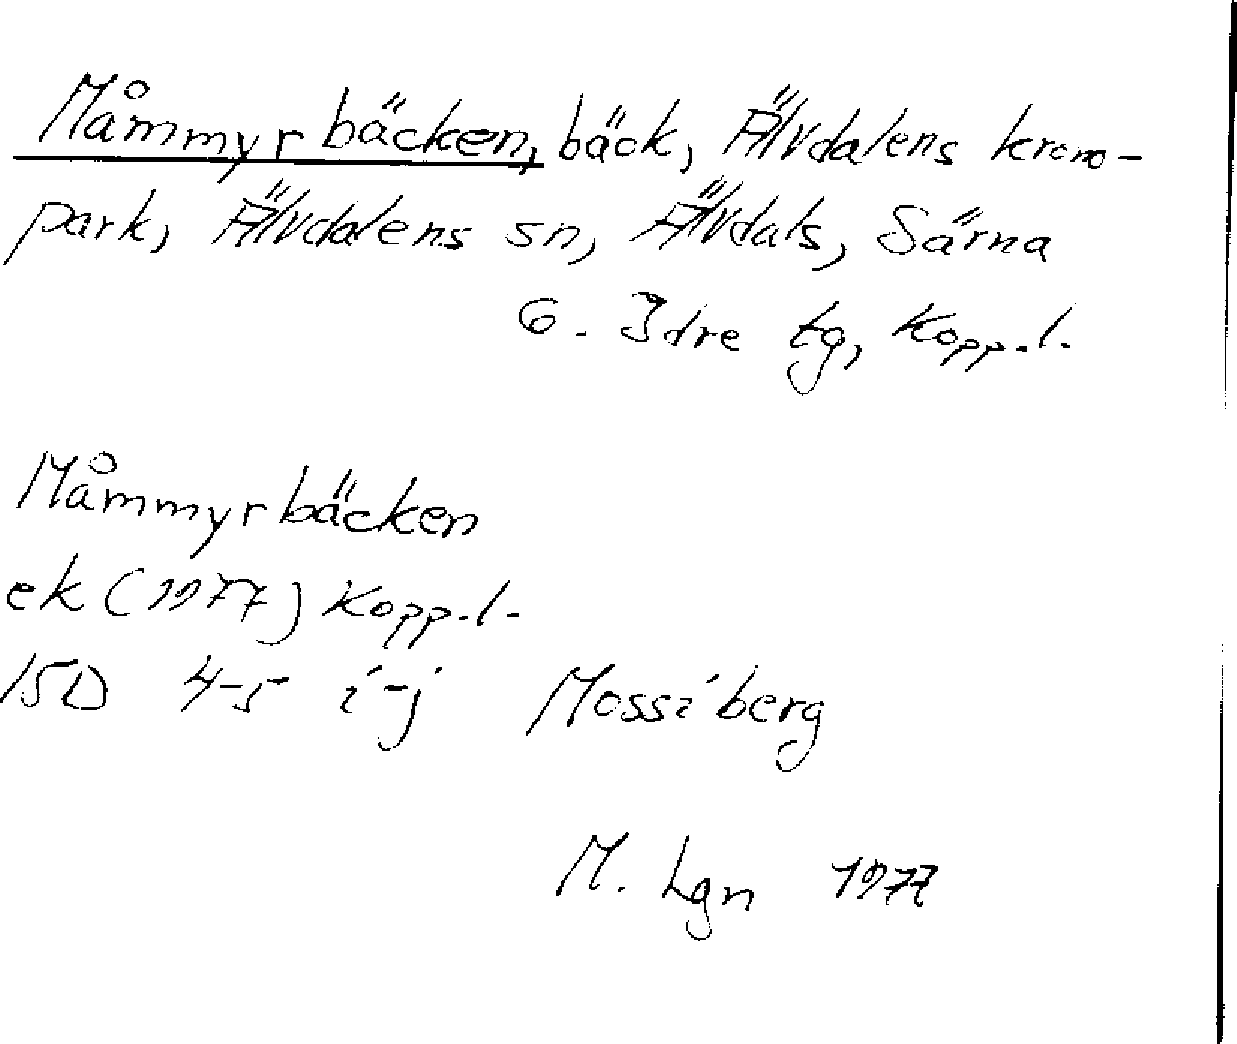 Måmmyrbäcken, bäck, Älvdalens krono-
park, Älvdalens sn, Älvdals, Särna
o. Idre tg, Kopp.l.
Måmmyrbäcken
ek (1977) Kopp.l.
15D 4-5 i-j Mossiberg
M. Lgn 1977